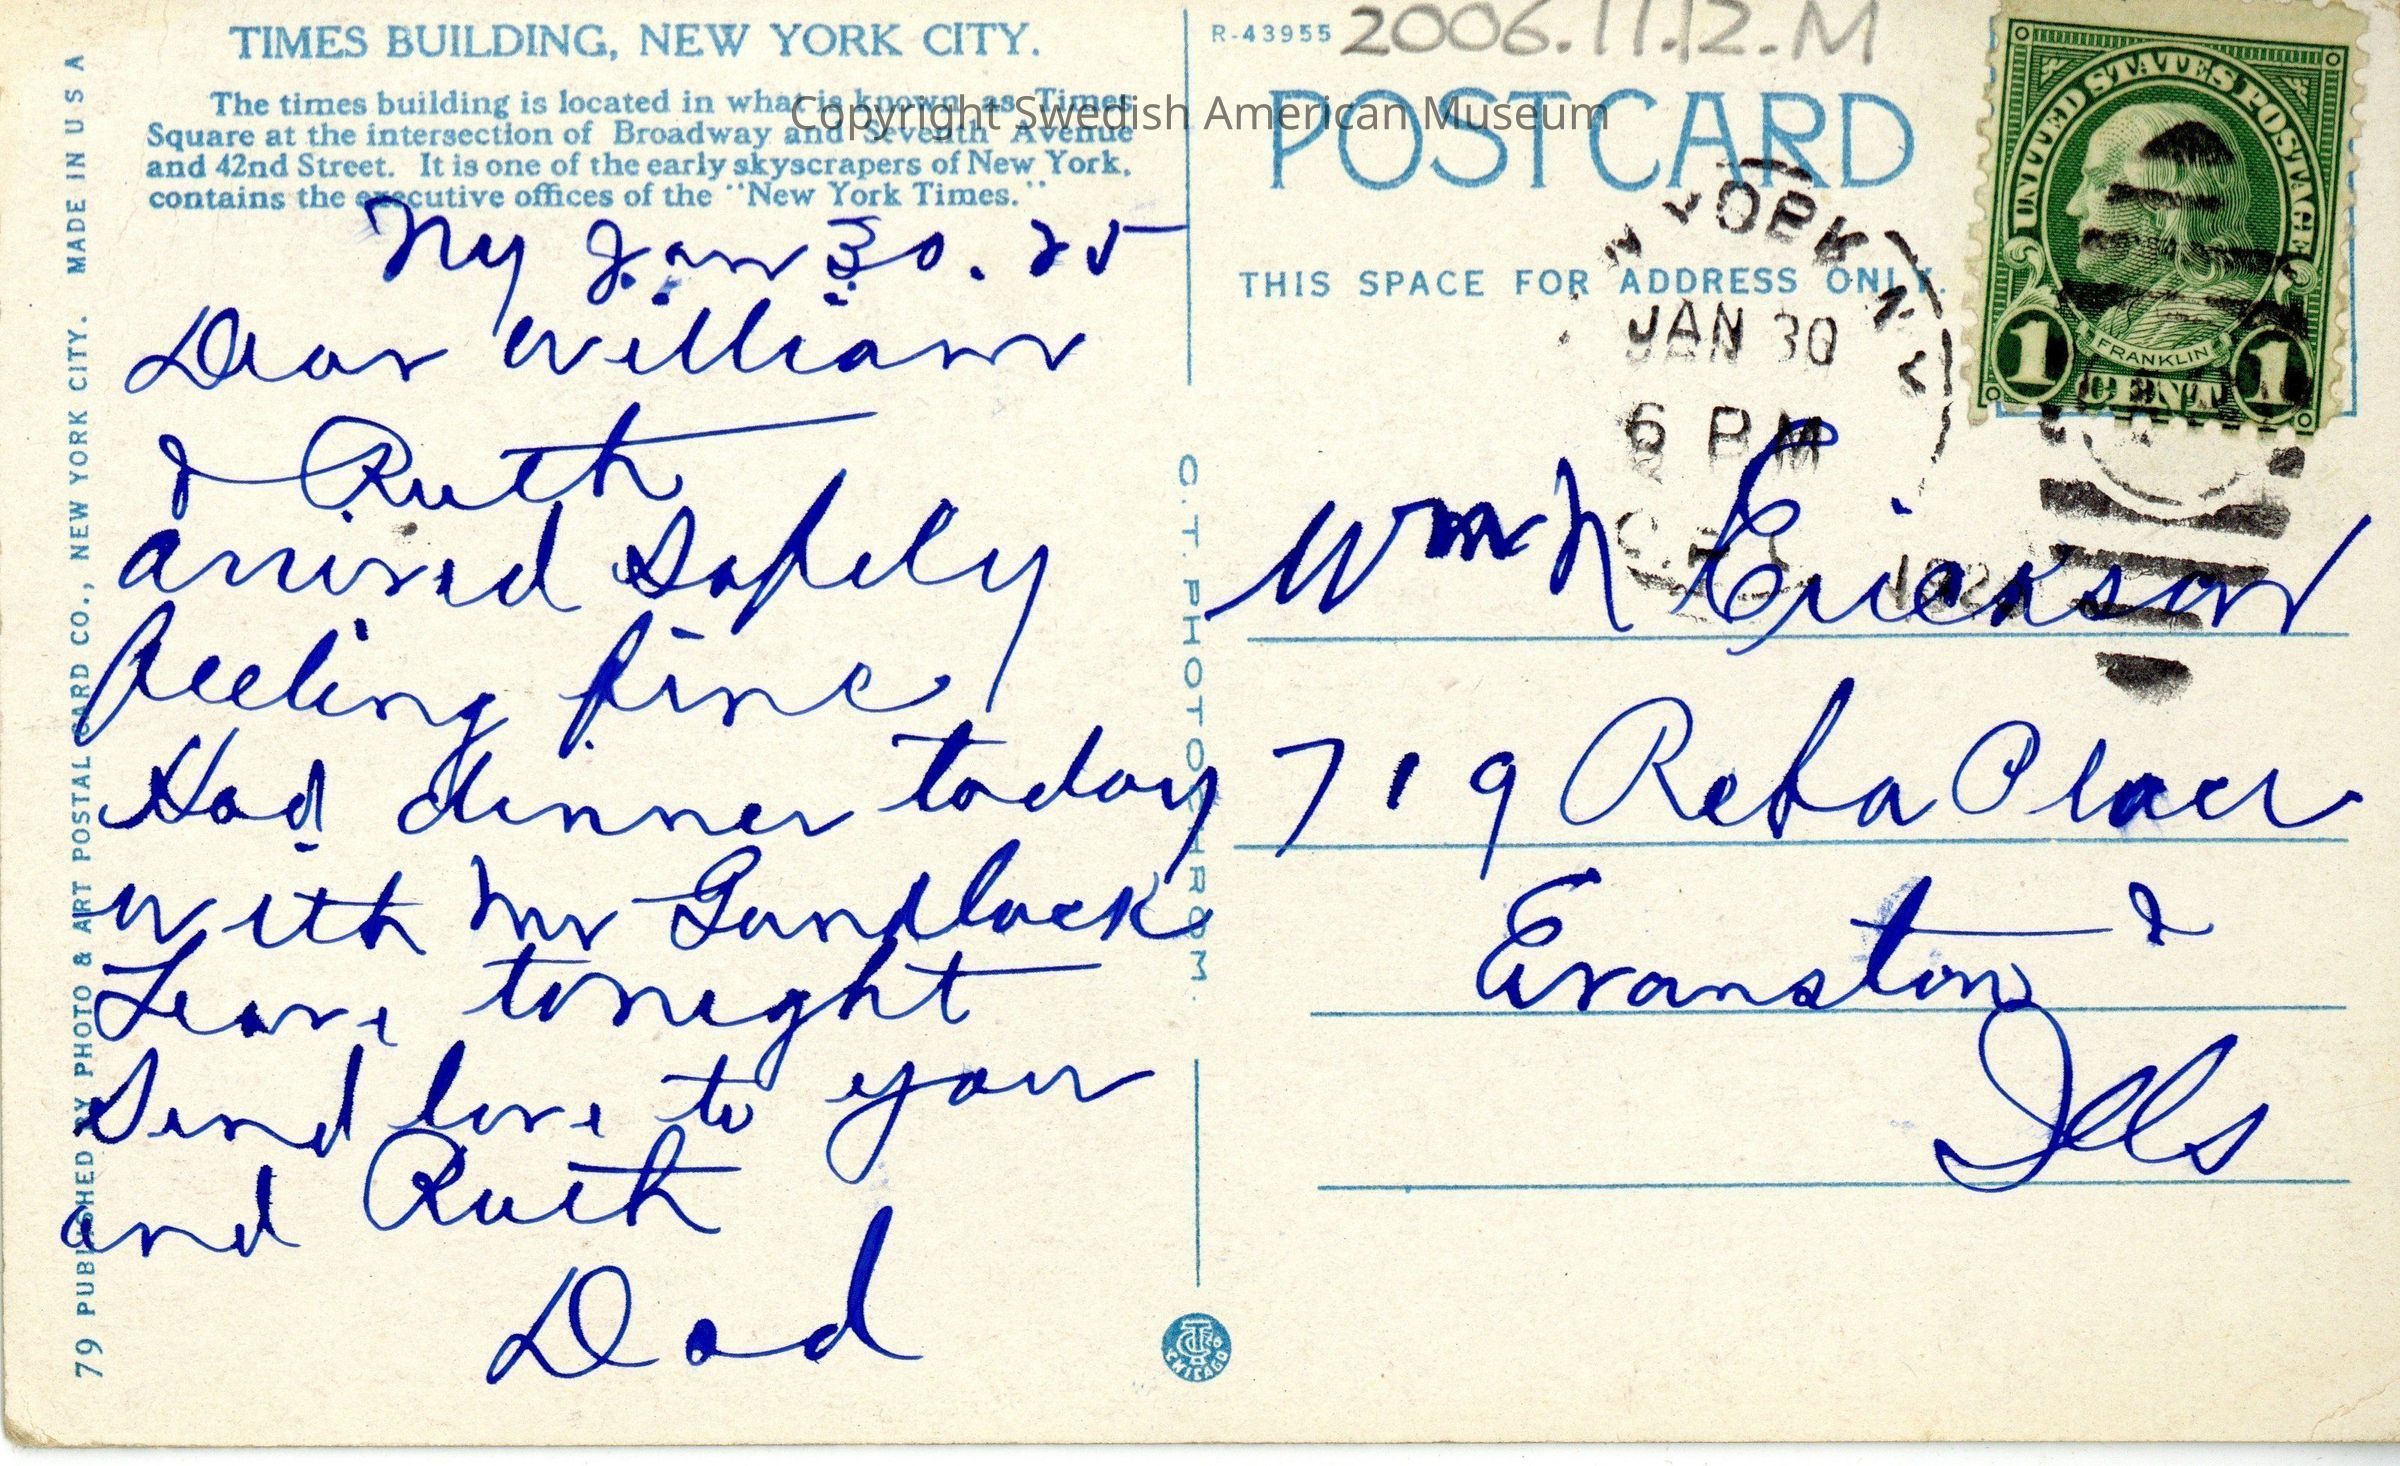 TIMES BUILDING, NEW YORK CITY.
The times building is located in what is known as Times
Square at the intersection of Broadway and Seventh Avenue
and 42nd Street. It is one of the early skyscrapers of New York,
contains the executive offices of the "New York Times."
NY Jan 30. 25
Dear William
& Ruth
arrived safely
feeling fine
Had dinner today
with Mr Gundlack
Leave tonight
Send love to you
and Ruth
Dad
79 PUBLISHED BY PHOTO & ART POSTAL CARD CO., NEW YORK CITY. MADE IN U S A
C. T. PHOTOCHROM.
CHICAGO
R-43955
2006.11.12.M
Copyright Swedish American Museum
POST CARD
THIS SPACE FOR ADDRESS ONLY.
N YORK N Y
JAN 30
6 PM
UNITED STATES POSTAGE
FRANKLIN
1 CENT 1
Wm Erickson
719 Reba Place
Evanston
Ills